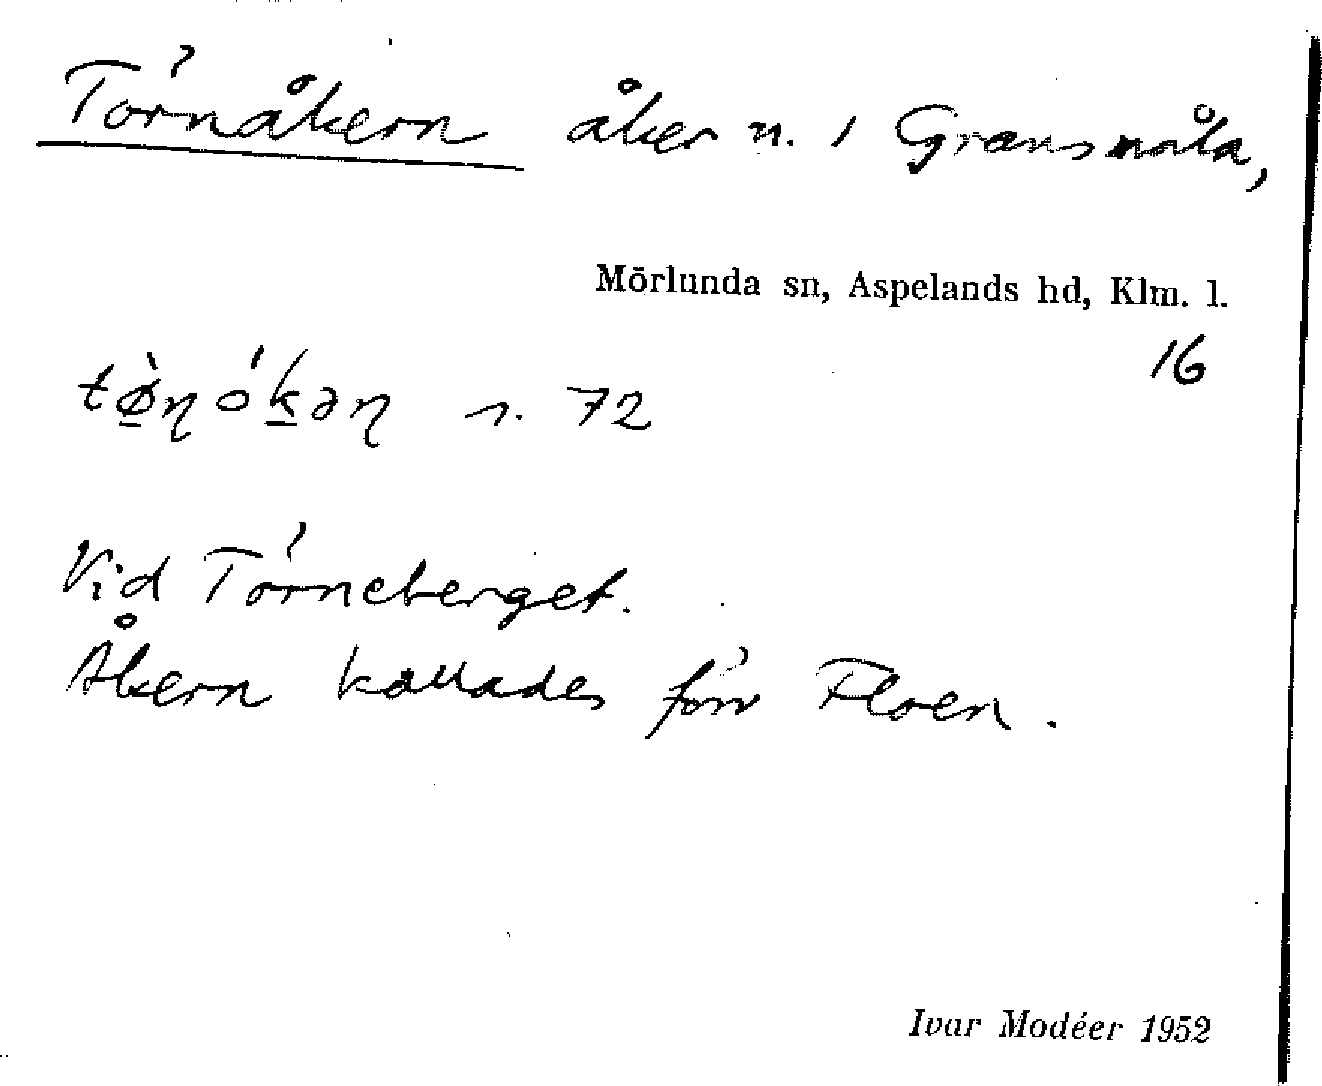 Törnåkern åker n. i Gransmåla,
Mörlunda sn, Aspelands hd, Klm. l.
16
tø̠̀ɳóḵəɳ s. 72
Vid Törneberget.
Åkern kallades förr Floen.
Ivar Modéer 1952